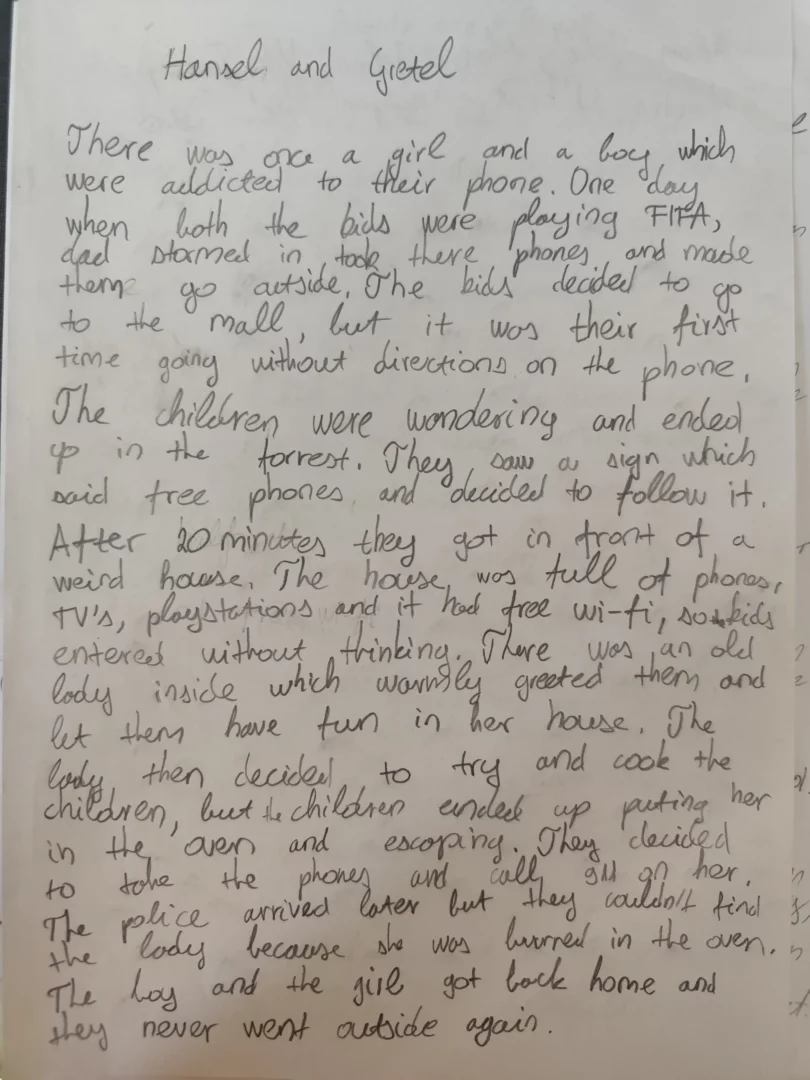 Hansel and Gretel
There was once a girl and a boy which
were addicted to their phone. One day
when both the kids were playing FIFA,
dad stormed in, took there phones, and made
them go outside. The kids decided to go
to the mall, but it was their first
time going without directions on the phone.
The children were wondering and ended
up in the forrest. They saw a sign which
said free phones and decided to follow it.
After 20 minutes they got in front of a
weird house. The house was full of phones,
TV's, playstations and it had free wi-fi, so kids
entered without thinking. There was an old
lady inside which warmly greeted them and
let them have fun in her house. The
lady then decided to try and cook the
children, but the children ended up puting her
in the oven and escaping. They decided
to take the phones and call 911 on her.
The police arrived later but they couldn't find
the lady because she was burned in the oven.
The boy and the girl got back home and
they never went outside again.